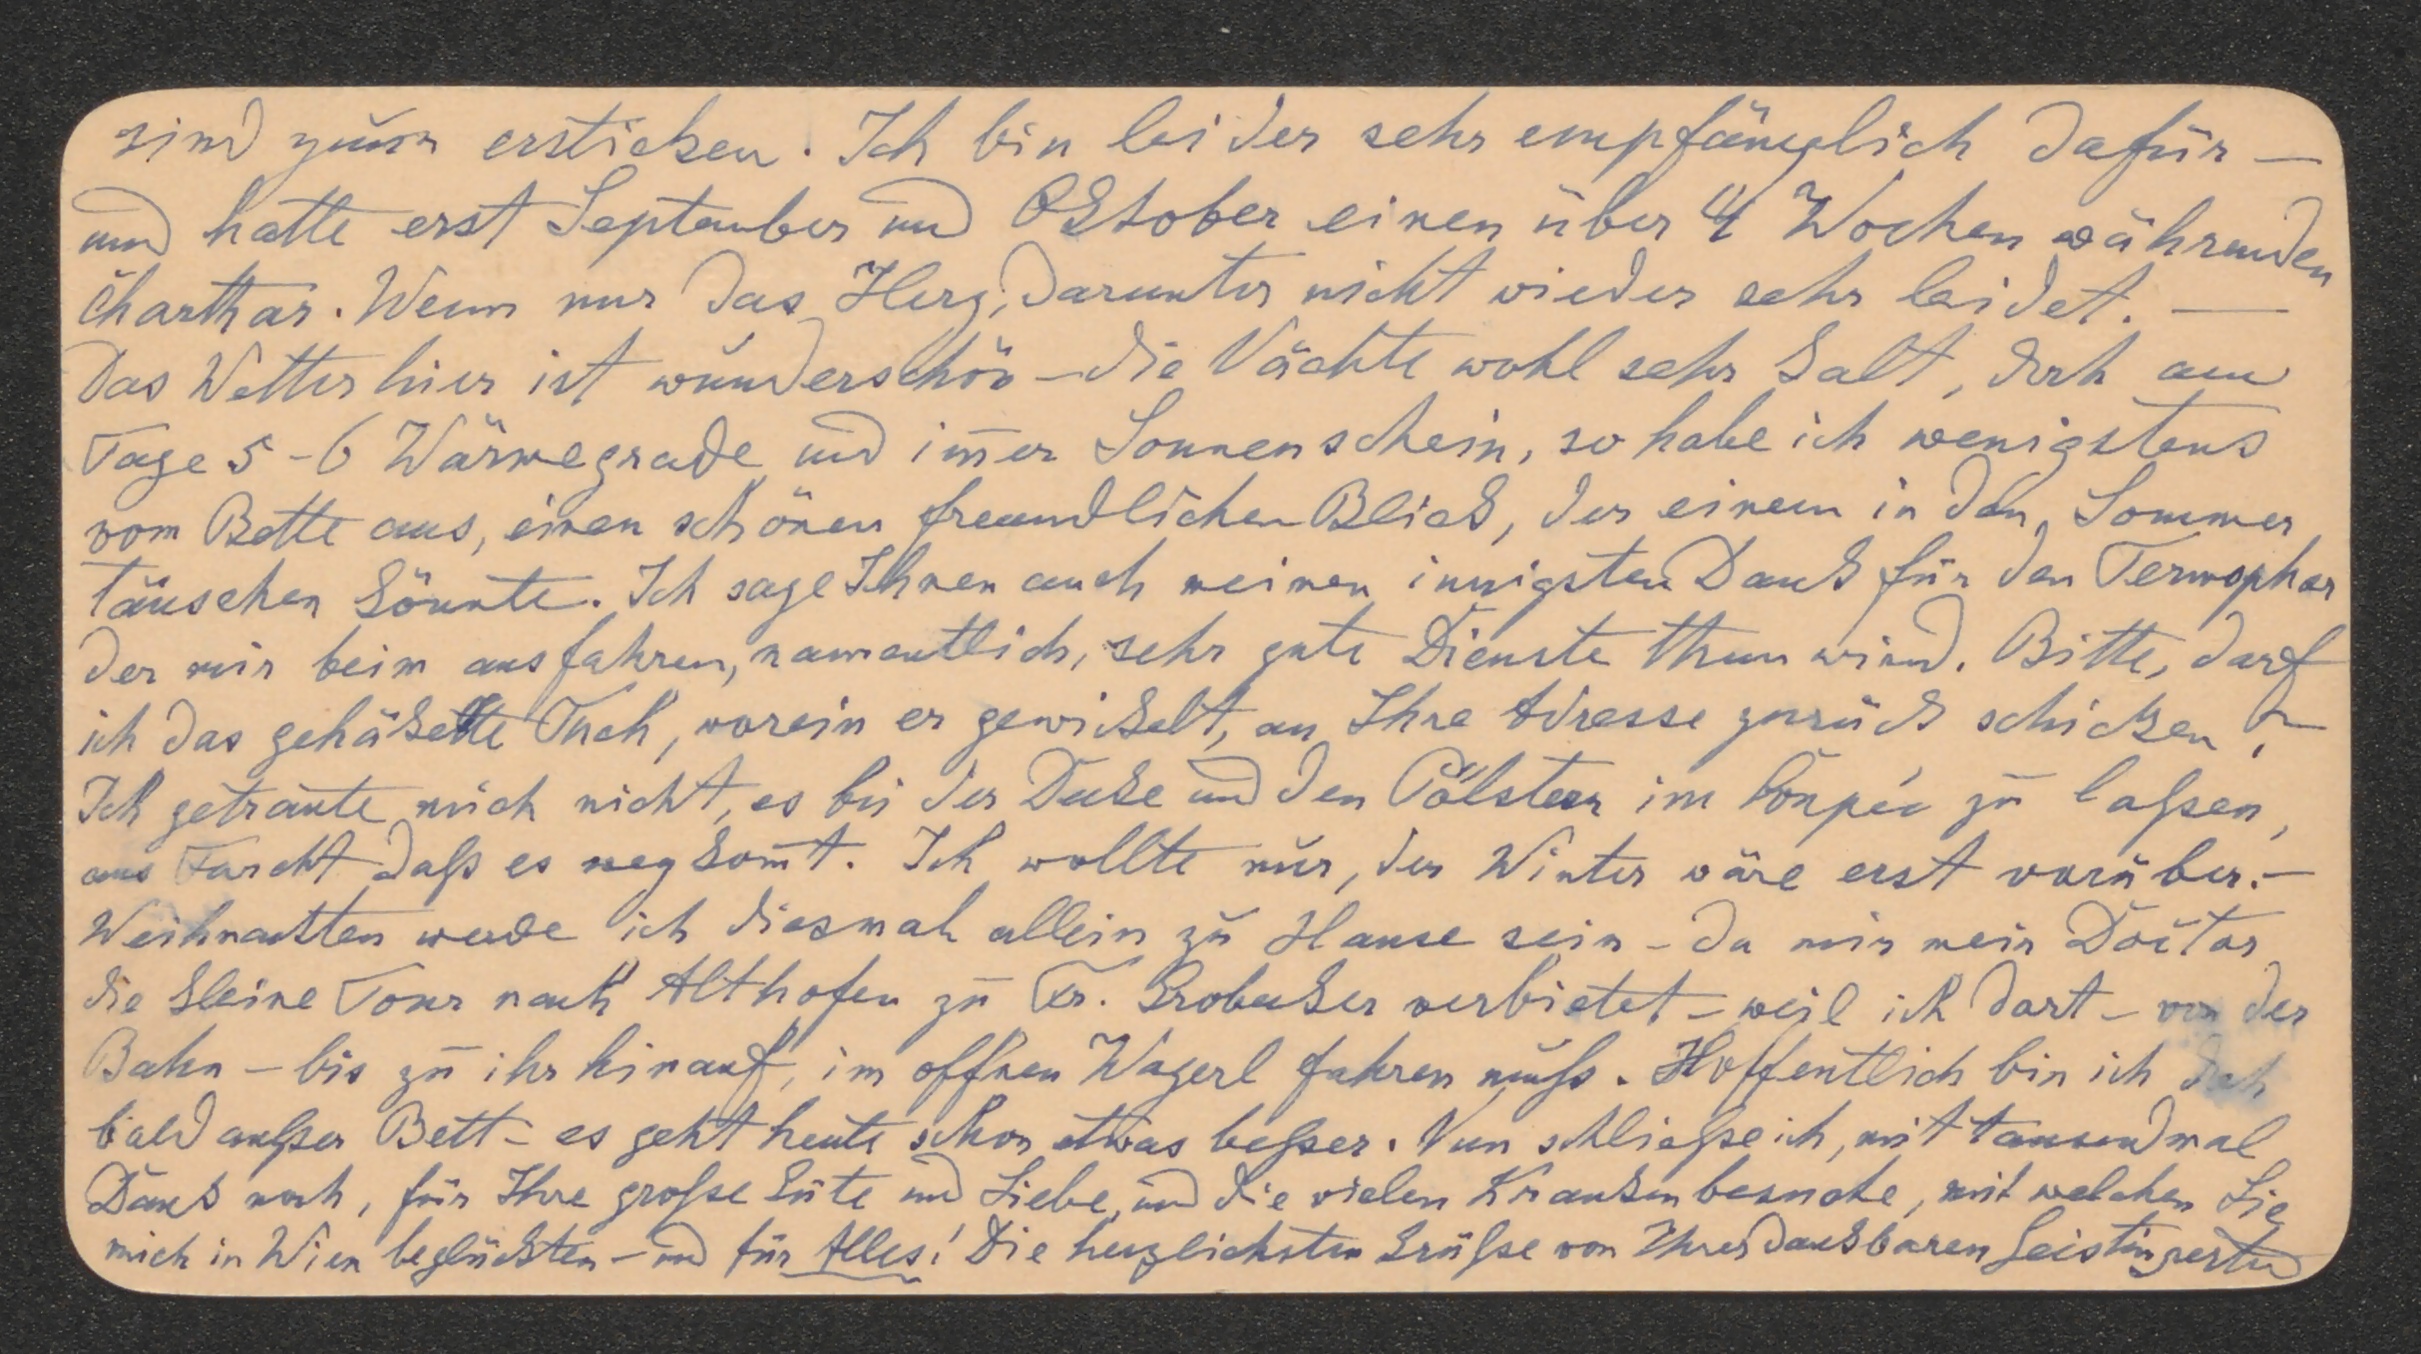 sind zum ersticken. Ich bin leider sehr empfänglich dafür –
und hatte erst September und Oktober einen über 4 Wochen währenden
Charthar. Wenn nur das Herz, darunter nicht wieder sehr leidet. —
Das Wetter hier ist wunderschön – die Nächte wohl sehr kalt, doch am
Tage 5 – 6 Wärmegrade und im̄er Sonnenschein, so habe ich wenigstens
vom Bette aus, einen schönen freundlichen Blick, der einem in den Sommer
täuschen könnte. Ich sage Ihnen auch meinen innigsten Dank für den Termophor
der mir beim ausfahren, namentlich, sehr gute Dienste thun wird. Bitte, darf
ich das gehäkelte Tuch, worein er gewickelt, an Ihre Adresse zurück schicken?
Ich getraute mich nicht, es bei der Decke und den Pölstern im Coupée zu laßen,
aus Furcht daß es wegkom̄t. Ich wollte nur, der Winter wäre erst vorüber. –
Weihnachten werde ich diesmal allein zu Hause sein – da mir mein Doctor
die kleine Tour nach Althofen zu Fr. Grobecker verbietet – weil ich dort – von der
Bahn – bis zu ihr hinauf, im offnen Wagerl fahren muß. Hoffentlich bin ich doch
bald außer Bett – es geht heute schon etwas beßer. Nun schließe ich, mit tausendmal
Dank noch, für Ihre große Güte und Liebe, und die vielen Krankenbesuche, mit welchen Sie
mich in Wien beglückten – und für Alles! Die herzlichsten Grüße von Ihrer dankbaren Geistinger